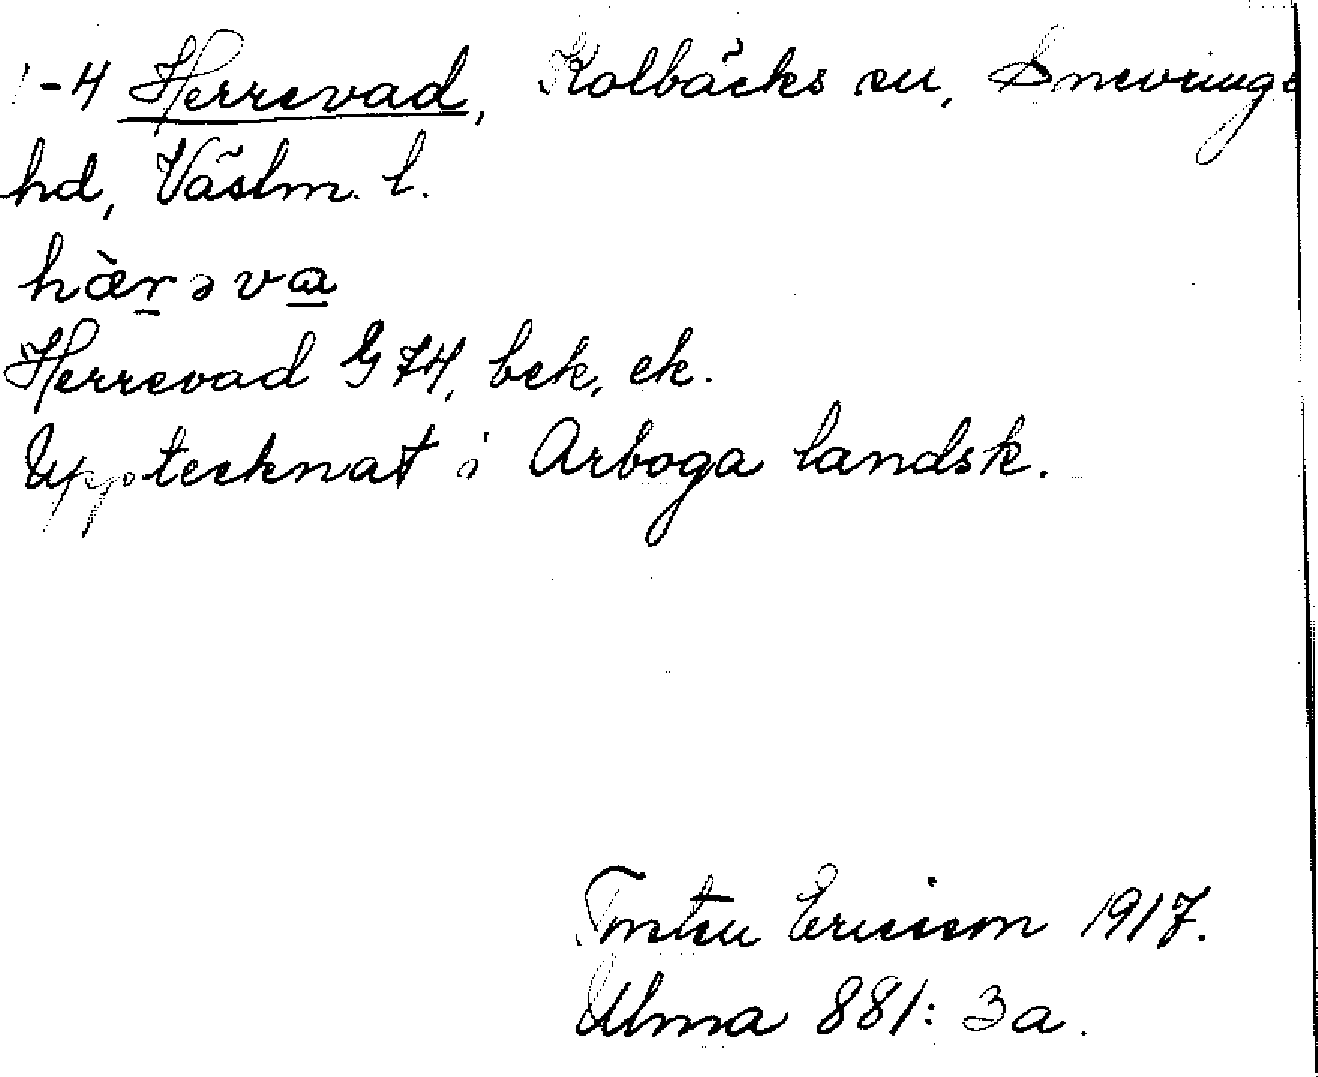 1-4 Herrevad, Kolbäcks sn, Snevringe
hd, Västm. l.
hæ̀r̲əva̲
Herrevad G 74, bek, ek.
Upptecknat i Arboga landsk.
Ericsson 1917.
Ulma 881: 3a.